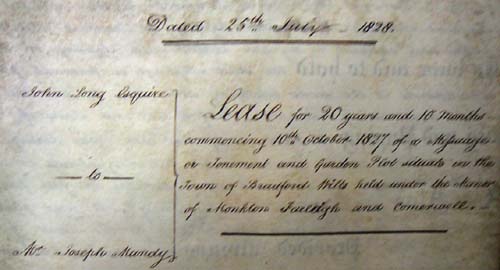 Dated 25th July 1828.
John Long Esquire
to
Mr Joseph Mundy
Lease for 20 years and 10 Months
commencing 10th October 1827 of a Messuage
or Tenement and Garden Plot situate in the
Town of Bradford Wilts held under the Manor
of Monkton Farleigh and Comerwell.